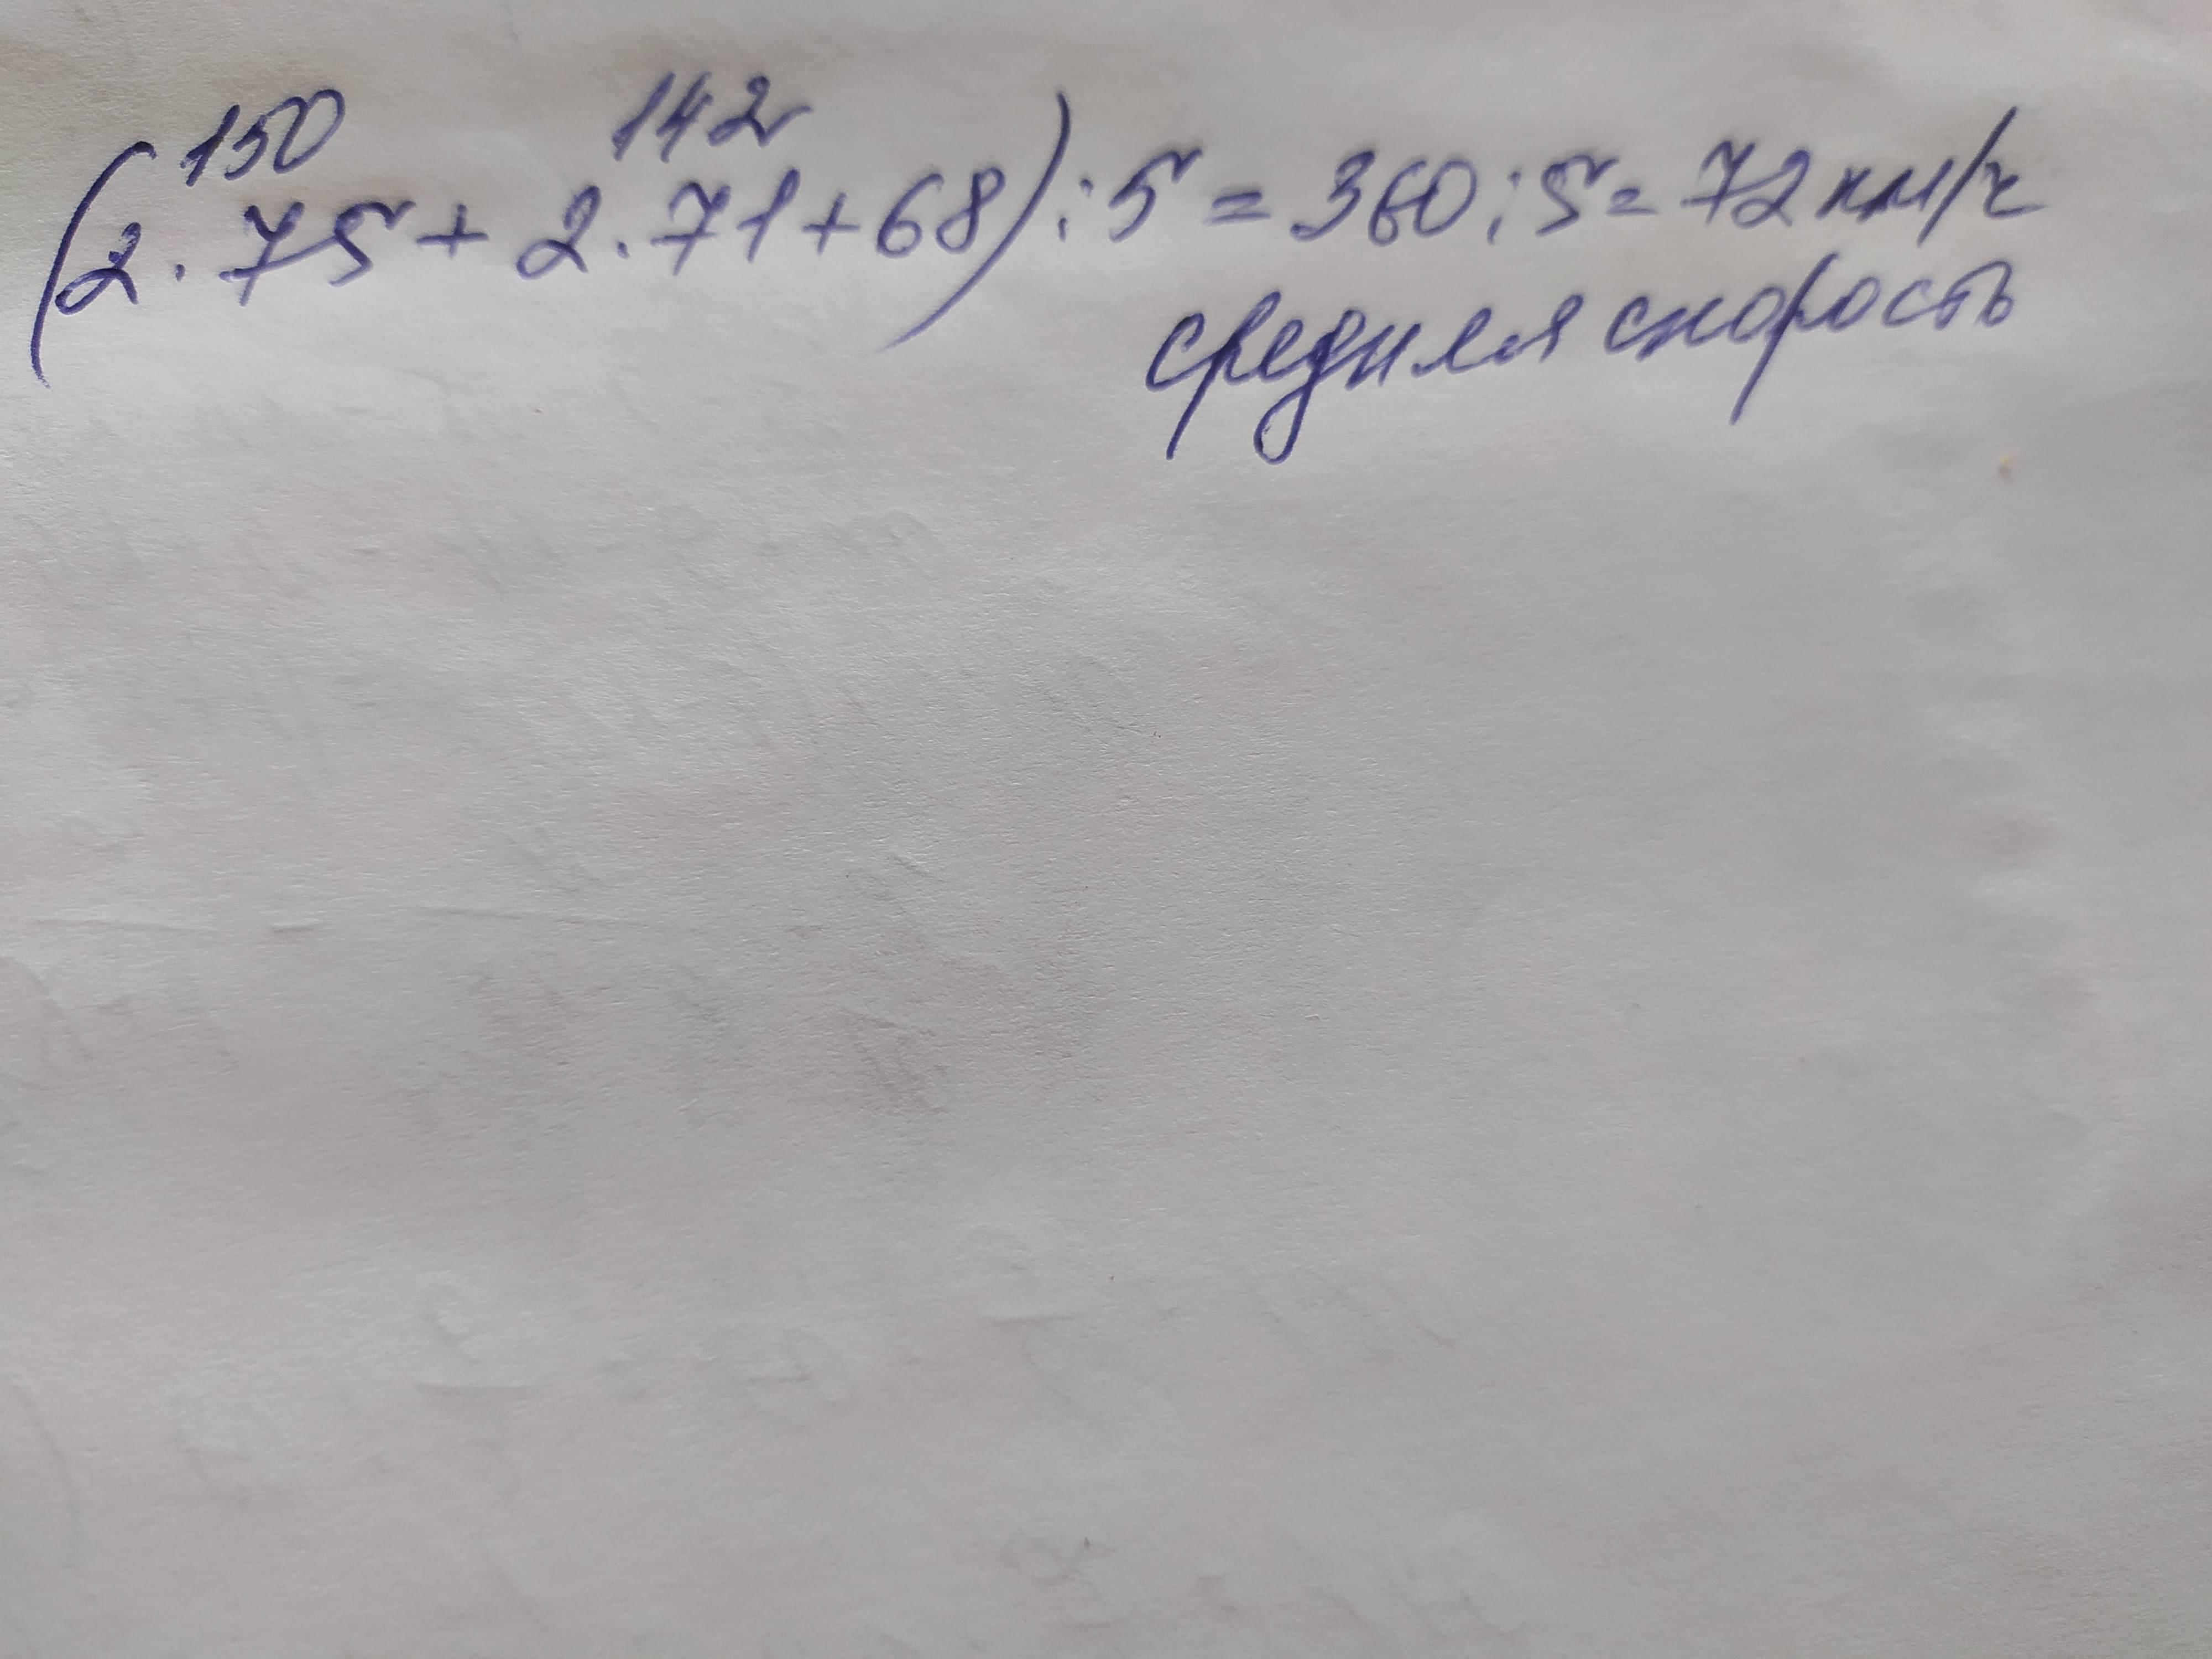 150 142
(2 · 75 + 2 · 71 + 68) : 5 = 360 : 5 = 72 км/ч
средняя скорость